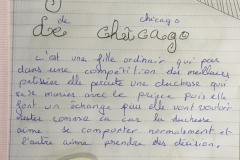 de chicago
de chicago
c'est une fille ordinair qui par
dans une compétition des meilleures
patissière elle percute une duchesse qui
va se marier avec le prince puis elle
font un échange puis elle vont vouloir
rester comme ca car la duchesse
aime se comporter normalement et
l'autre aime prendre des décision.